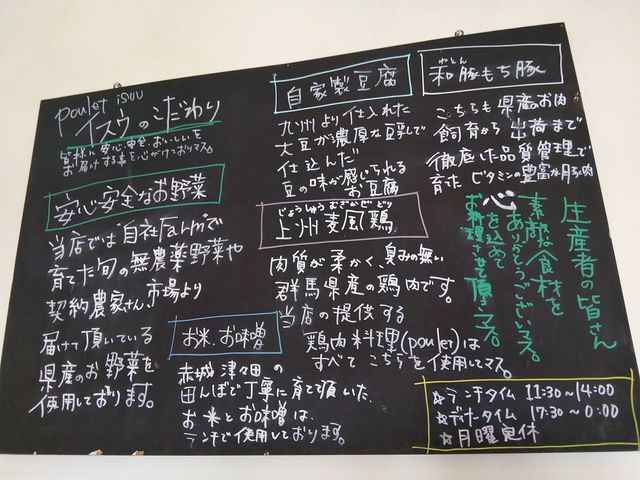 poulet isuu
イスウのこだわり
皆様に安心、安全、おいしいを
お届けする事を心がけておりマス。
安心安全なお野菜
当店では自社Farmで
育てた旬の無農薬野菜や
契約農家さん、市場より
届けて頂いている
県産のお野菜を
使用しております。
自家製豆腐
九州より仕入れた
大豆が濃厚な豆乳で
仕込んだ
豆の味が感じられる
お豆腐
じょうしゅうむぎかぜどり
上州麦風鶏
肉質が柔かく臭みの無い
群馬県産の鶏肉です。
当店の提供する
鶏肉料理(poulet)は
すべてこちらを使用してマス。
お米、お味噌
赤城津久田の
田んぼで丁寧に育て頂いた
お米とお味噌は、
ランチで使用しております。
わとん
和豚もち豚
こちらも県産のお肉
飼育から出荷まで
徹底した品質管理で
育た ビタミンの豊富な豚肉
生産者の皆さん
素敵な食材を
ありがとうございマス。
心を込めて
お料理させて頂きマス。
☆ランチタイム 11:30~14:00
☆ディナータイム 17:30~0:00
☆月曜定休